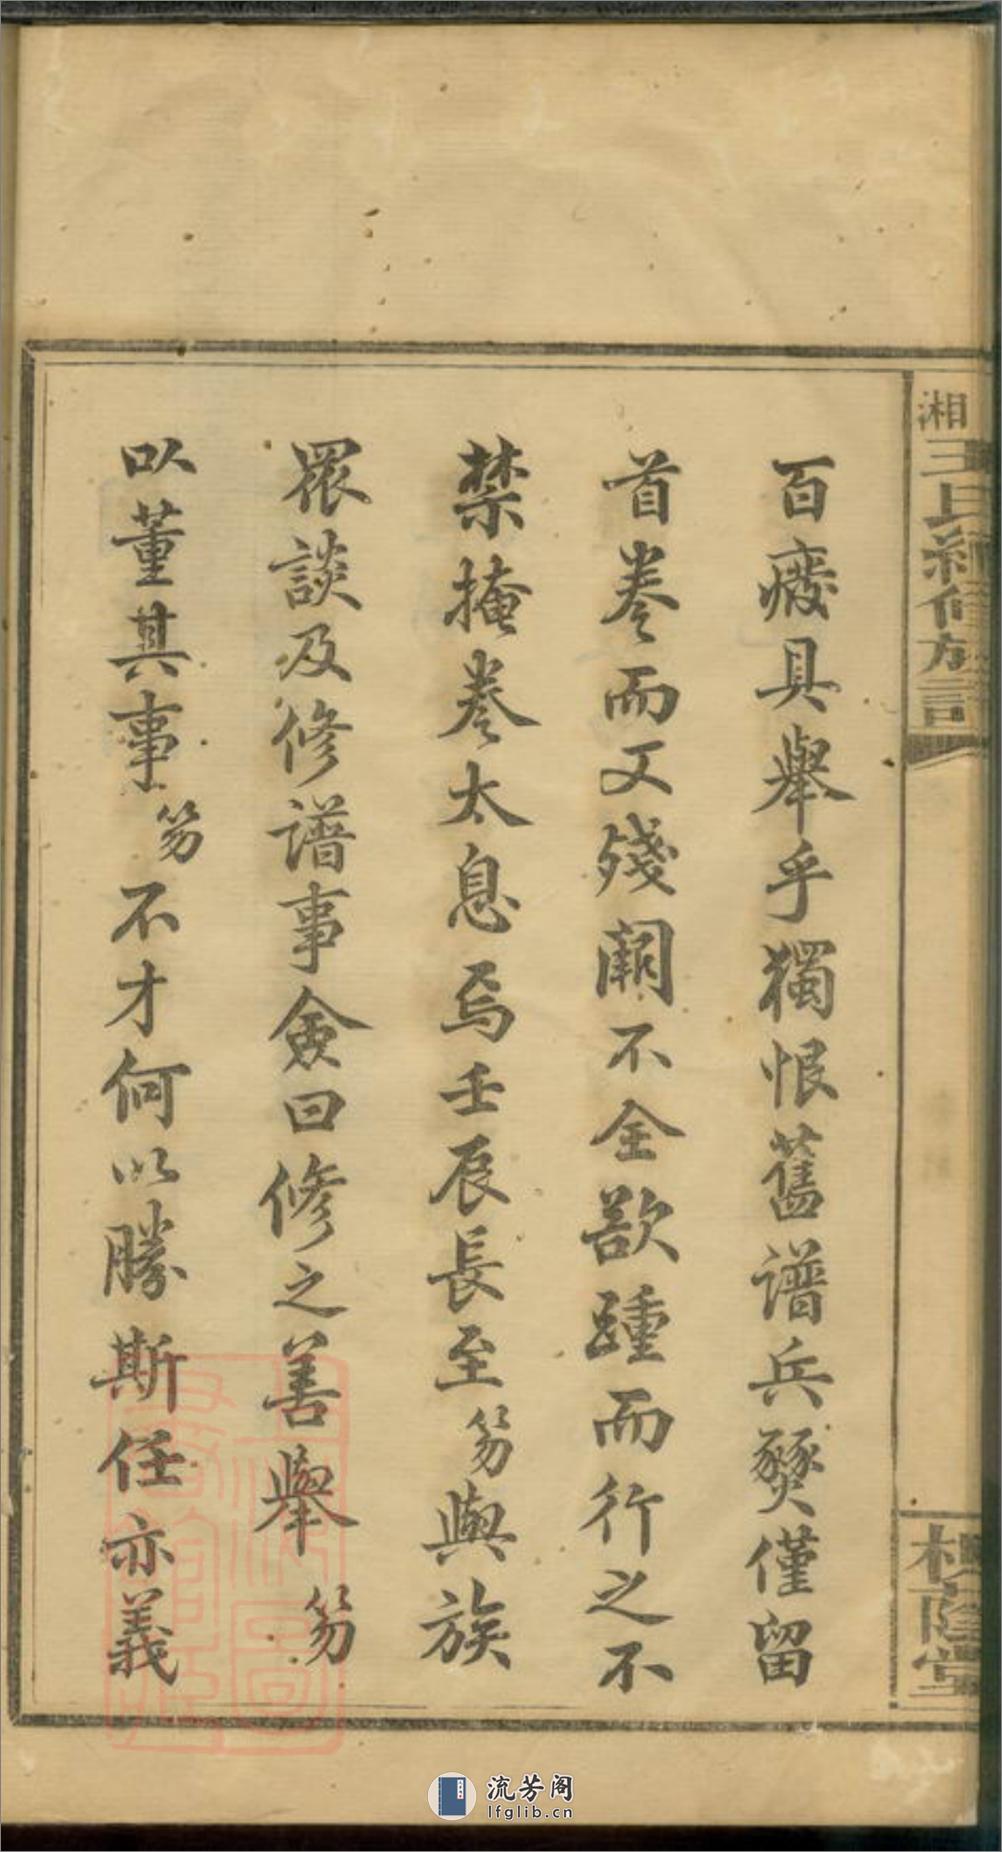 湘
王氏續修族譜
槐蔭堂
百癈具舉乎獨恨舊譜兵燹僅留
首卷而又殘闕不全欲踵而行之不
禁掩卷太息焉壬辰長至笏與族
衆談及修譜事僉曰修之善舉笏
以董其事笏不才何以勝斯任亦義
流芳阁
lfglib.cn